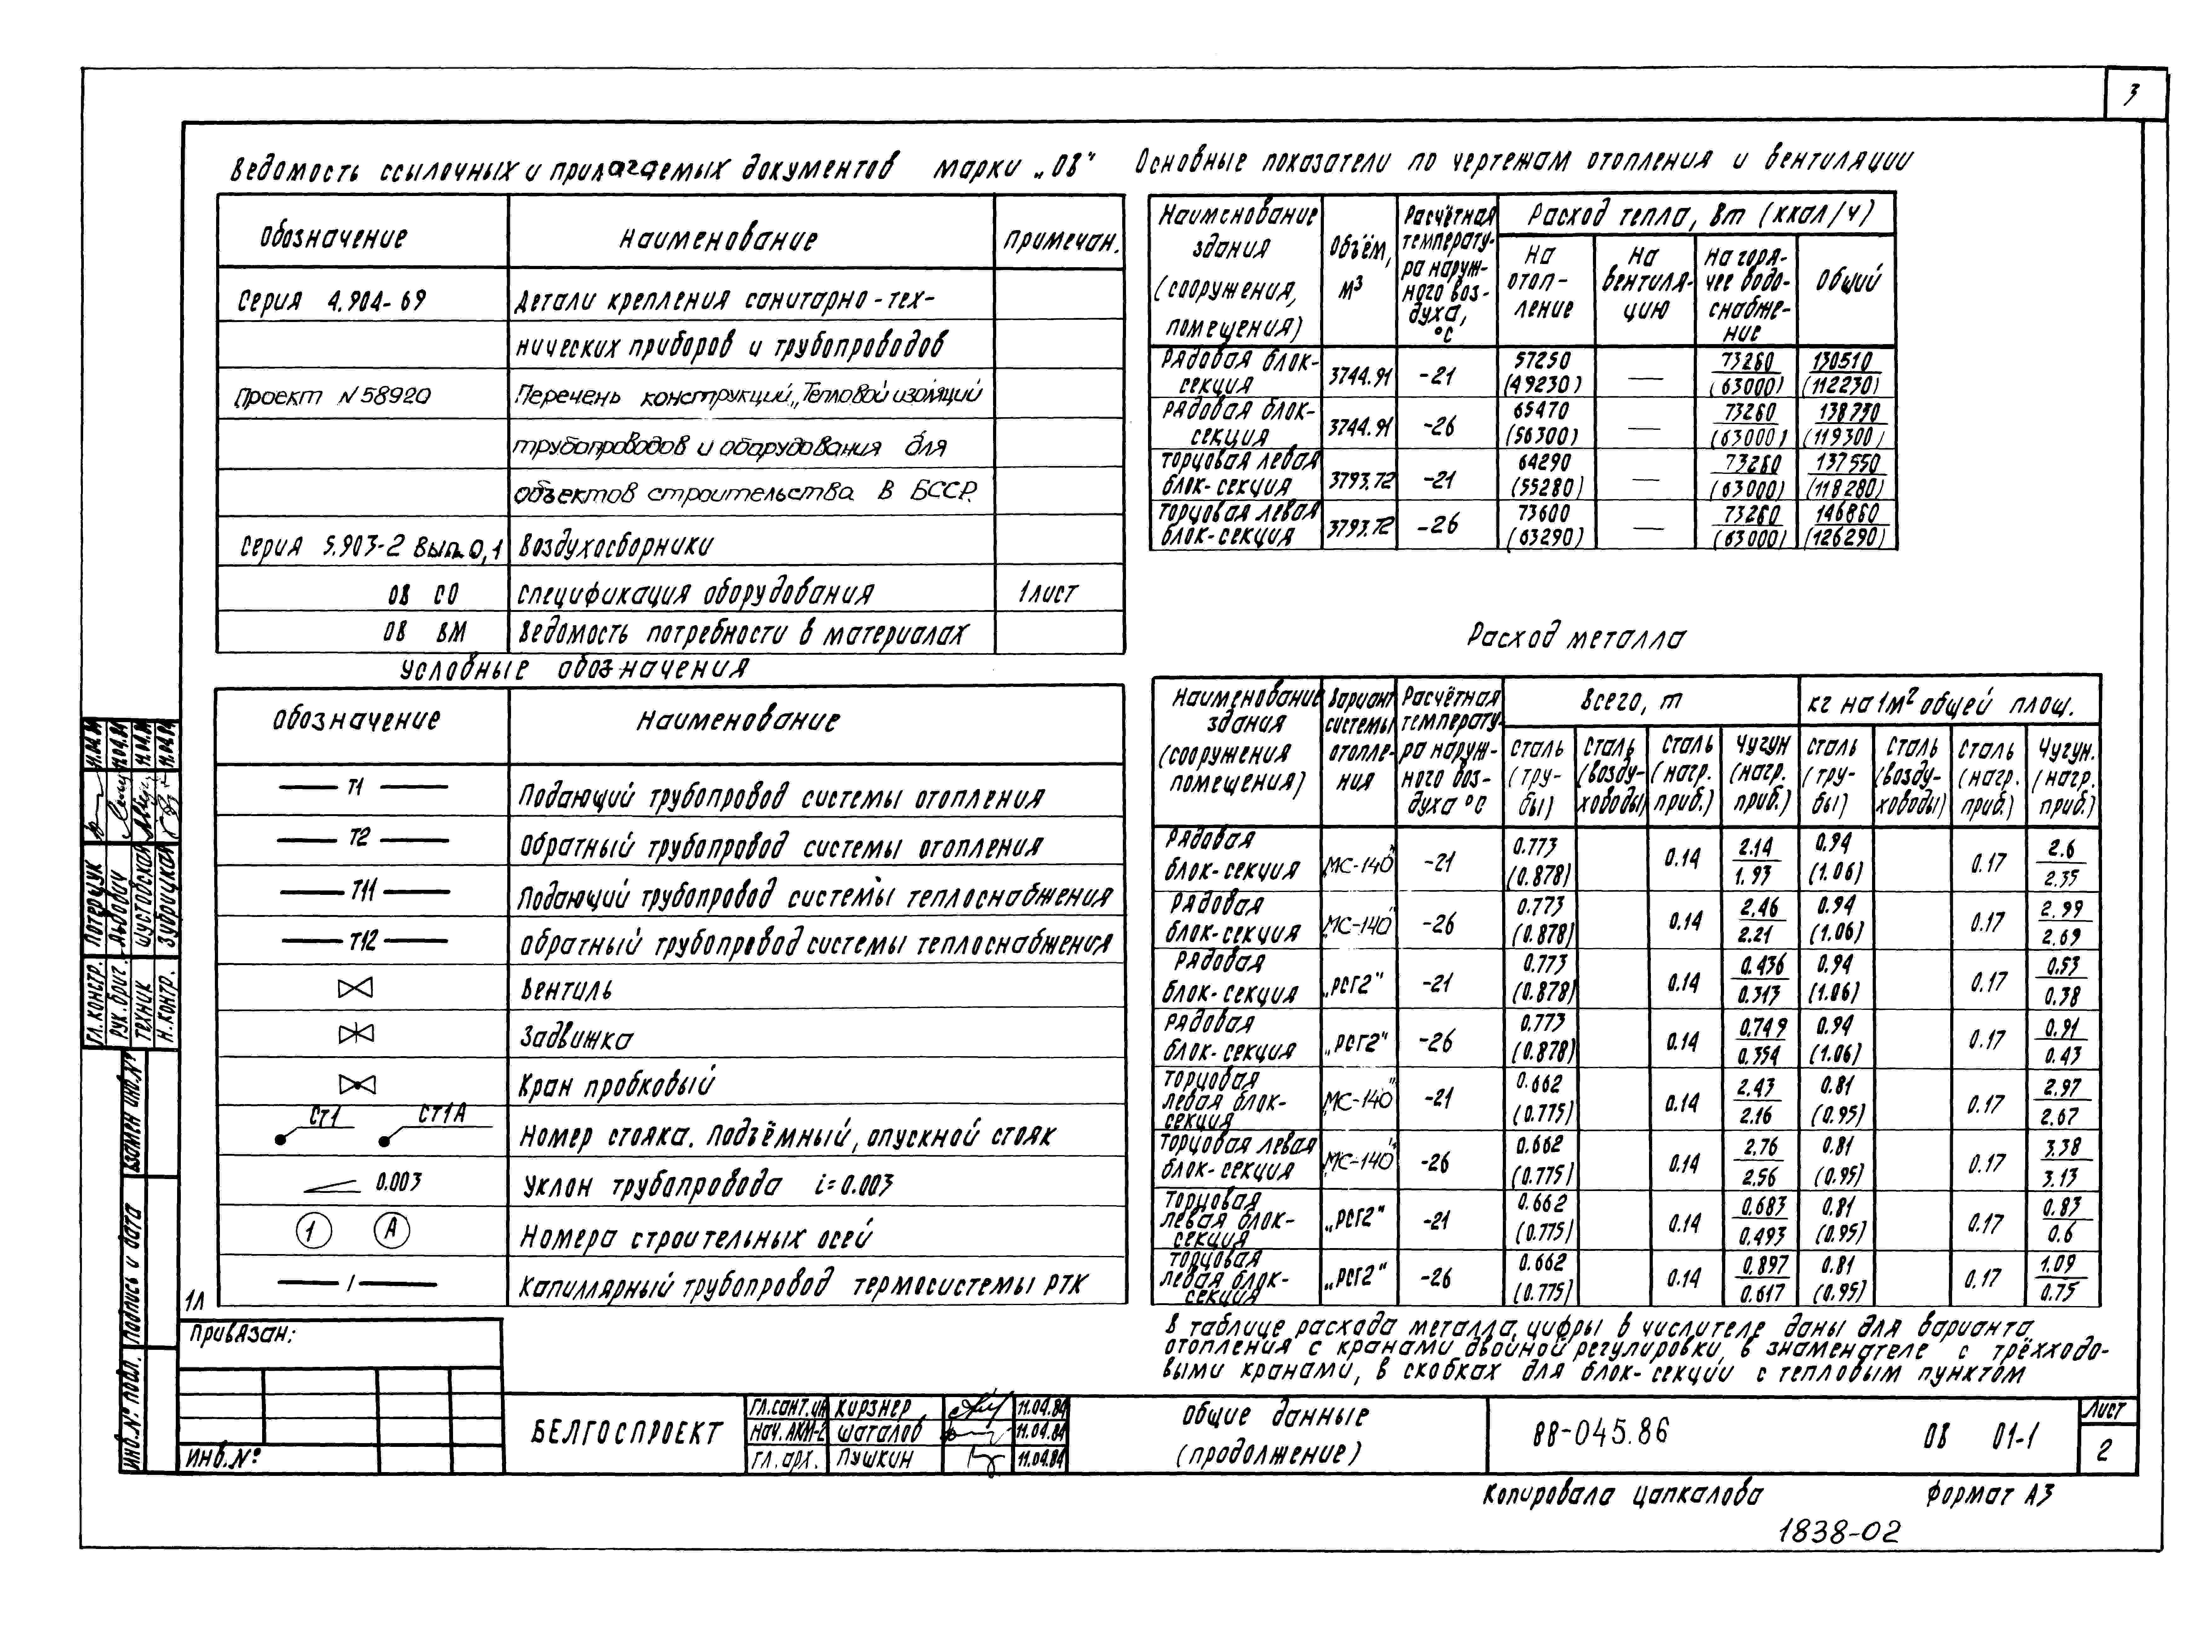 3
Ведомость ссылочных и прилагаемых документов марки „ОВ“
Обозначение Наименование Примечан.
Серия 4.904-69 Детали крепления санитарно-тех-
нических приборов и трубопроводов
Проект N 58920 Перечень конструкций „Тепловой изоляции
трубопроводов и оборудования для
объектов строительства в БССР.
Серия 5.903-2 Вып. 0,1 Воздухосборники
ОВ СО Спецификация оборудования 1 лист
ОВ ВМ Ведомость потребности в материалах
Условные обозначения
Обозначение Наименование
Т1 Подающий трубопровод системы отопления
Т2 Обратный трубопровод системы отопления
Т11 Подающий трубопровод системы теплоснабжения
Т12 Обратный трубопровод системы теплоснабжения
Вентиль
Задвижка
Кран пробковый
Ст1 Ст1А Номер стояка. Подъёмный, опускной стояк
0.003 Уклон трубопровода i=0.003
1 А Номера строительных осей
/ Капиллярный трубопровод термосистемы РТК
Основные показатели по чертежам отопления и вентиляции
Наименование здания (сооружения, помещения) Объём, м³ Расчётная температу-ра наруж-ного воз-духа, °С Расход тепла, Вт (ккал/ч)
На отоп-ление На вентиля-цию На горя-чее водо-снабже-ние Общий
Рядовая блок-секция 3744.91 -21 57250 (49230) — 73260 (63000) 130510 (112230)
Рядовая блок-секция 3744.91 -26 65470 (56300) — 73260 (63000) 138730 (119300)
Торцовая левая блок-секция 3793.72 -21 64290 (55280) — 73260 (63000) 137550 (118280)
Торцовая левая блок-секция 3793.72 -26 73600 (63290) — 73260 (63000) 146860 (126290)
Расход металла
Наименование здания (сооружения помещения) Вариант системы отопле-ния Расчётная температу-ра наруж-ного воз-духа °С Всего, т кг на 1м² общей площ.
Сталь (тру-бы) Сталь (возду-ховоды) Сталь (нагр. приб.) Чугун (нагр. приб.) Сталь (тру-бы) Сталь (возду-ховоды) Сталь (нагр. приб.) Чугун. (нагр. приб.)
Рядовая блок-секция „МС-140“ -21 0.773 (0.878) 0.14 2.14 1.93 0.94 (1.06) 0.17 2.6 2.35
Рядовая блок-секция „МС-140“ -26 0.773 (0.878) 0.14 2.46 2.21 0.94 (1.06) 0.17 2.99 2.69
Рядовая блок-секция „РСГ2“ -21 0.773 (0.878) 0.14 0.436 0.313 0.94 (1.06) 0.17 0.53 0.38
Рядовая блок-секция „РСГ2“ -26 0.773 (0.878) 0.14 0.749 0.354 0.94 (1.06) 0.17 0.91 0.43
Торцовая левая блок-секция „МС-140“ -21 0.662 (0.775) 0.14 2.43 2.16 0.81 (0.95) 0.17 2.97 2.67
Торцовая левая блок-секция „МС-140“ -26 0.662 (0.775) 0.14 2.76 2.56 0.81 (0.95) 0.17 3.38 3.13
Торцовая левая блок-секция „РСГ2“ -21 0.662 (0.775) 0.14 0.683 0.493 0.81 (0.95) 0.17 0.83 0.6
Торцовая левая блок-секция „РСГ2“ -26 0.662 (0.775) 0.14 0.897 0.617 0.81 (0.95) 0.17 1.09 0.75
В таблице расхода металла, цифры в числителе даны для варианта
отопления с кранами двойной регулировки, в знаменателе с трёхходо-
выми кранами, в скобках для блок-секций с тепловым пунктом
Гл. констр. Потерщук 11.04.84
Рук. бриг. Львович 11.04.84
Техник Шустовская 11.04.84
Н. контр. Зубрицкая 11.04.84
Взамен инв.№
Подпись и дата
Инв.№ подл.
1Л
Привязан:
Инв.№
БЕЛГОСПРОЕКТ
Гл.сант.ин Кирзнер 11.04.84
Нач. АКМ-2 Шаталов 11.04.84
Гл. арх. Пушкин 11.04.84
Общие данные
(продолжение)
88-045.86 ОВ 01-1
Лист
2
Копировала Цапкалова Формат А3
1838-02